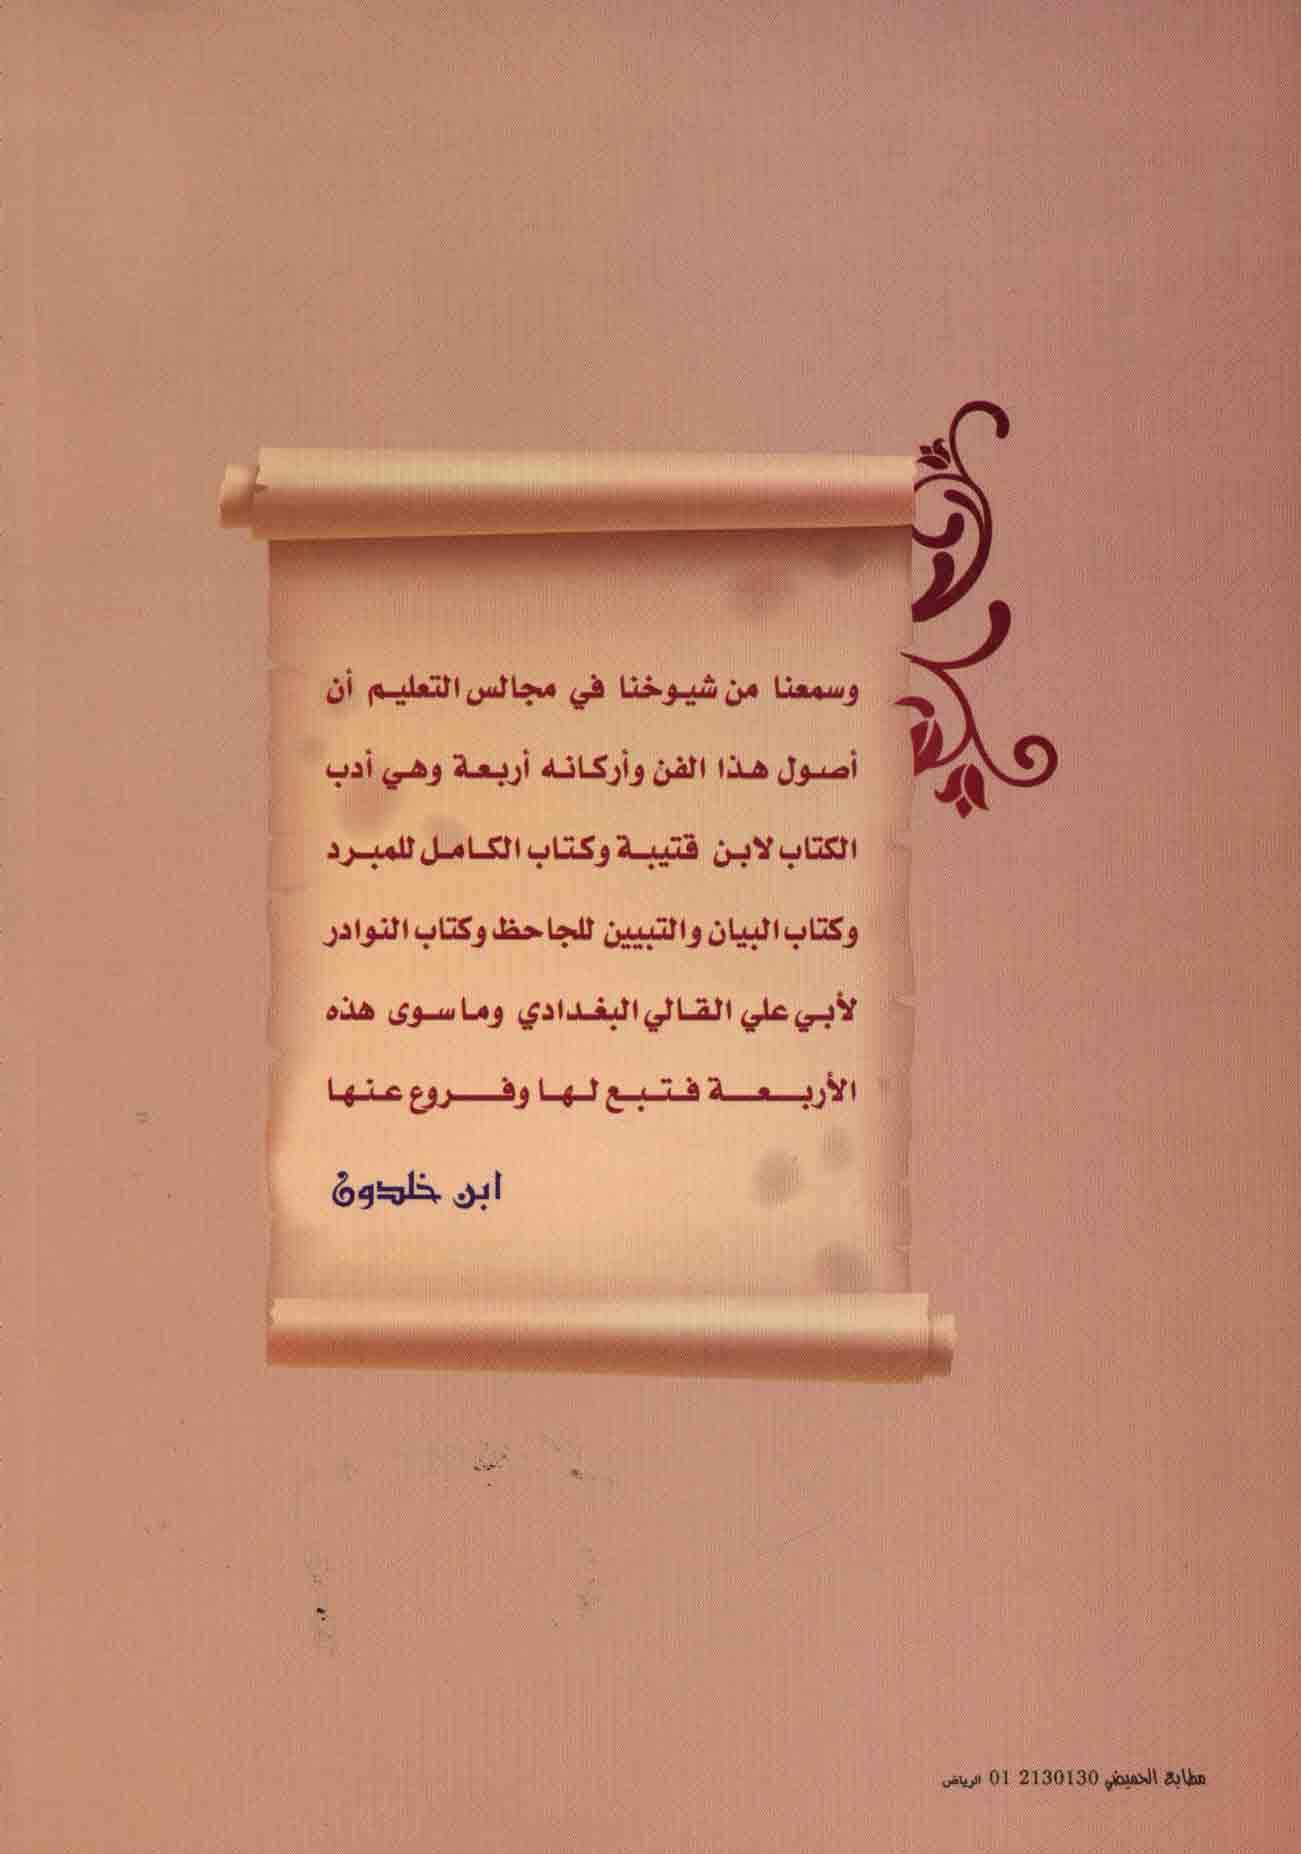 وسمعنا من شيوخنا في مجالس التعليم أن
أصول هذا الفن وأركانه أربعة وهي أدب
الكتاب لابن قتيبة وكتاب الكامل للمبرد
وكتاب البيان والتبيين للجاحظ وكتاب النوادر
لأبي علي القالي البغدادي وما سوى هذه
الأربعة فتبع لها وفروع عنها
ابن خلدون
مطابع الحميضي 2130130 01 الرياض